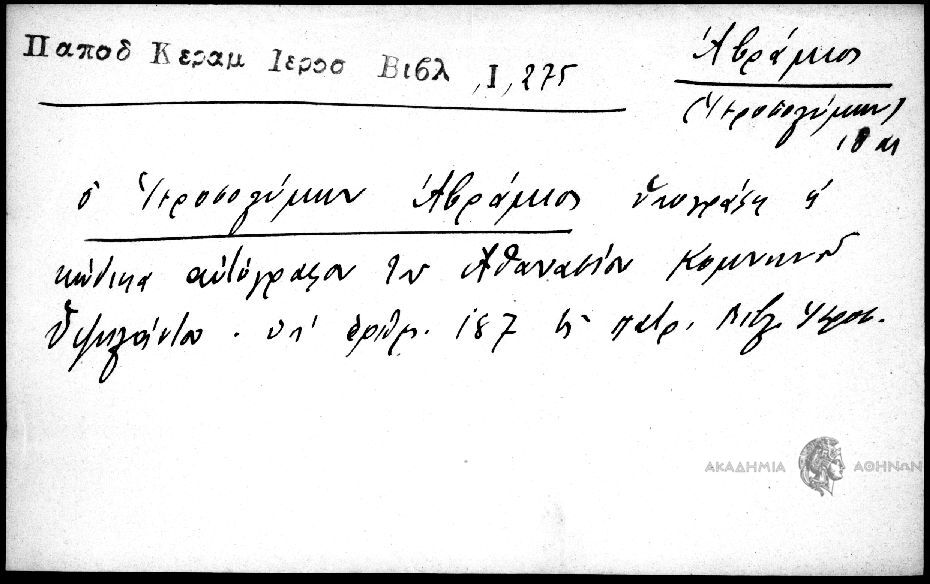 Παποδ Κεραμ Ιεροσ Βιβλ, Ι, 275
Ἀβράμιος
(Ἱεροσολύμων)
18 αι
ὁ Ἱεροσολύμων Ἀβράμιος ὑπογράφει
κώδικα αὐτόγραφον τοῦ Ἀθανασίου Κομνηνοῦ
Ὑψηλάντου. ὑπ' ἀριθμ. 187 τῆς πατρ. Βιβλ. Ἱεροσ.
ΑΚΑΔΗΜΙΑ ΑΘΗΝΩΝ